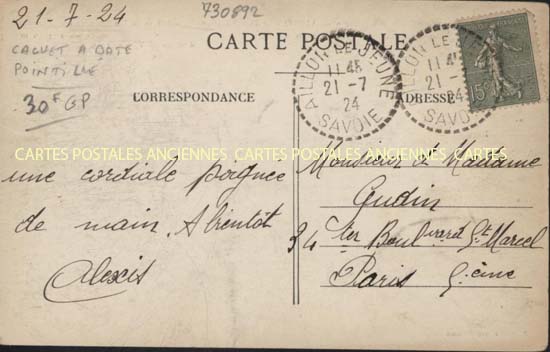 21-7-24
730892
CACHET A DATE
POINTILLÉ
30F GP
CARTE POSTALE
CORRESPONDANCE
ADRESSE
AILLON LE JEUNE
11 45
21 -7
24
SAVOIE
AILLON LE JEUNE
11 45
21 -
24
SAVOIE
15
CARTES POSTALES ANCIENNES CARTES POSTALES ANCIENNES CARTES POSTALES ANCIENNES
une cordiale poignée
de main. A bientôt
Alexis
Monsieur et Madame
Gudin
34 ter Boulevard St Marcel
Paris 5ème